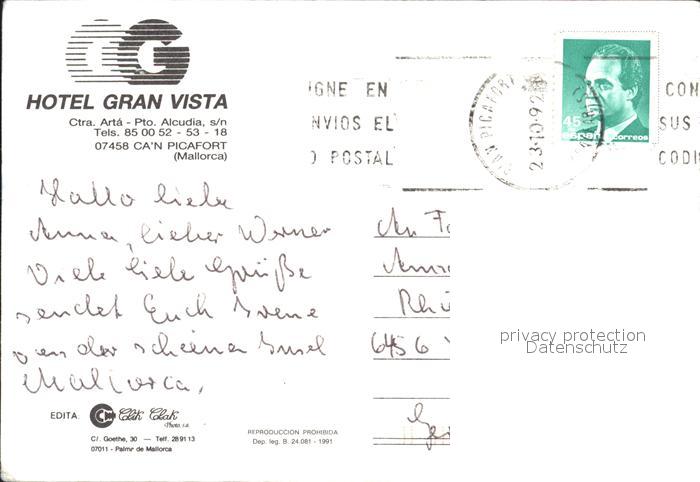 HOTEL GRAN VISTA
Ctra. Artá - Pto. Alcudia, s/n
Tels. 85 00 52 - 53 - 18
07458 CA'N PICAFORT
(Mallorca)
IGNE EN
NVIOS EL
O POSTAL
CAN PICAFORT
23-10-92
45
españa correos
CON
SUS
CODIG
Hallo liebe
Anna, lieber Werner
Viele liebe Grüße
sendet Euch Irene
von der schönen Insel
Mallorca,
An Fa
Rhü
6456
Ge
privacy protection
Datenschutz
EDITA:
Clik Clak
Photo, s.a.
C/. Goethe, 30 — Telf. 28 91 13
07011 - Palma de Mallorca
REPRODUCCION PROHIBIDA
Dep. leg. B. 24.081 - 1991